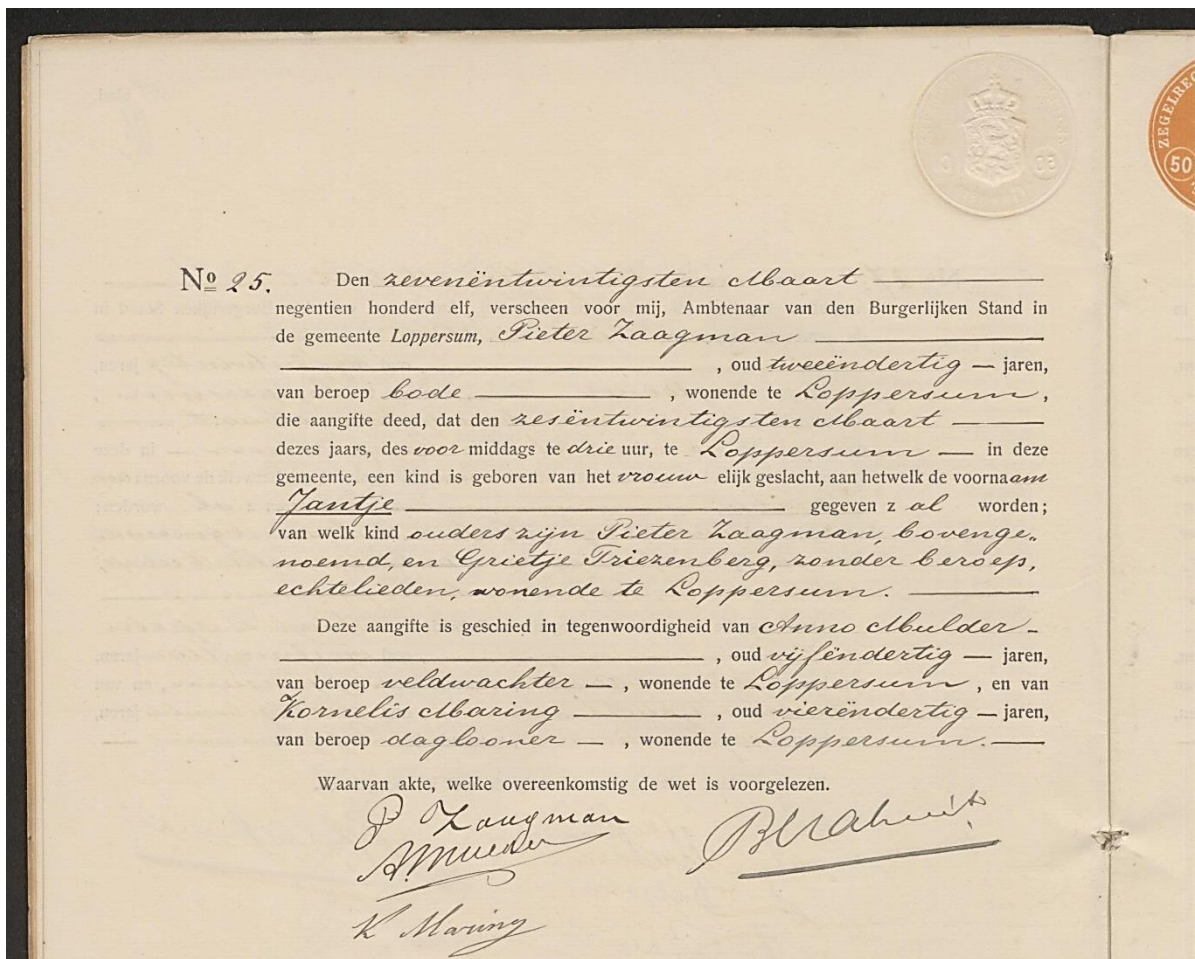 No 25. Den zevenëntwintigsten Maart
negentien honderd elf, verscheen voor mij, Ambtenaar van den Burgerlijken Stand in
de gemeente Loppersum, Pieter Zaagman
, oud tweeëndertig — jaren,
van beroep bode , wonende te Loppersum,
die aangifte deed, dat den zesëntwintigsten Maart
dezes jaars, des voor middags te drie uur, te Loppersum — in deze
gemeente, een kind is geboren van het vrouw elijk geslacht, aan hetwelk de voornaam
Jantje gegeven z al worden;
van welk kind ouders zijn Pieter Zaagman, bovenge„
noemd, en Grietje Friezenberg, zonder beroep,
echtelieden, wonende te Loppersum.
Deze aangifte is geschied in tegenwoordigheid van Anno Mulder
, oud vijfëndertig — jaren,
van beroep veldwachter — , wonende te Loppersum, en van
Kornelis Maring , oud vierëndertig — jaren,
van beroep daglooner — , wonende te Loppersum.
Waarvan akte, welke overeenkomstig de wet is voorgelezen.
P Zaagman
AMulder
K Maring
ZEGELREC
50